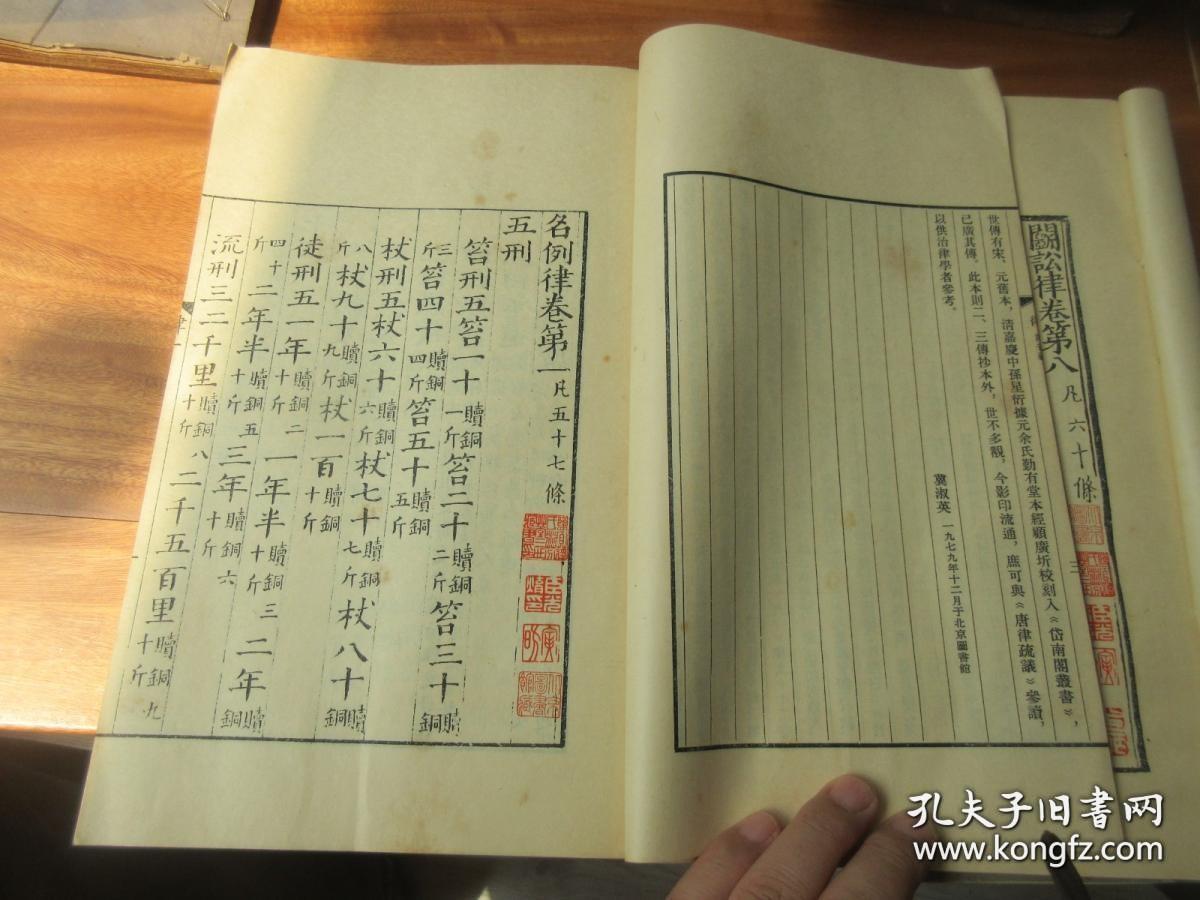 鬭訟律卷第八 凡六十條
三
世傳有宋、元舊本，清嘉慶中孫星衍據元余氏勤有堂本經顧廣圻校刻入《岱南閣叢書》，
已廣其傳。此本則二、三傳抄本外，世不多覯，今影印流通，庶可與《唐律疏議》參讀，
以供治律學者參考。
冀淑英 一九七九年十二月于北京圖書館
名例律卷第一 凡五十七條
五刑
笞刑五笞一十贖銅一斤笞二十贖銅二斤笞三十贖銅
三斤笞四十贖銅四斤笞五十贖銅五斤
杖刑五杖六十贖銅六斤杖七十贖銅七斤杖八十贖銅
八斤杖九十贖銅九斤杖一百贖銅十斤
徒刑五一年贖銅二十斤一年半贖銅三十斤二年贖銅
四十斤二年半贖銅五十斤三年贖銅六十斤
流刑三二千里贖銅八十斤二千五百里贖銅九十斤
孔夫子旧书网
www.kongfz.com